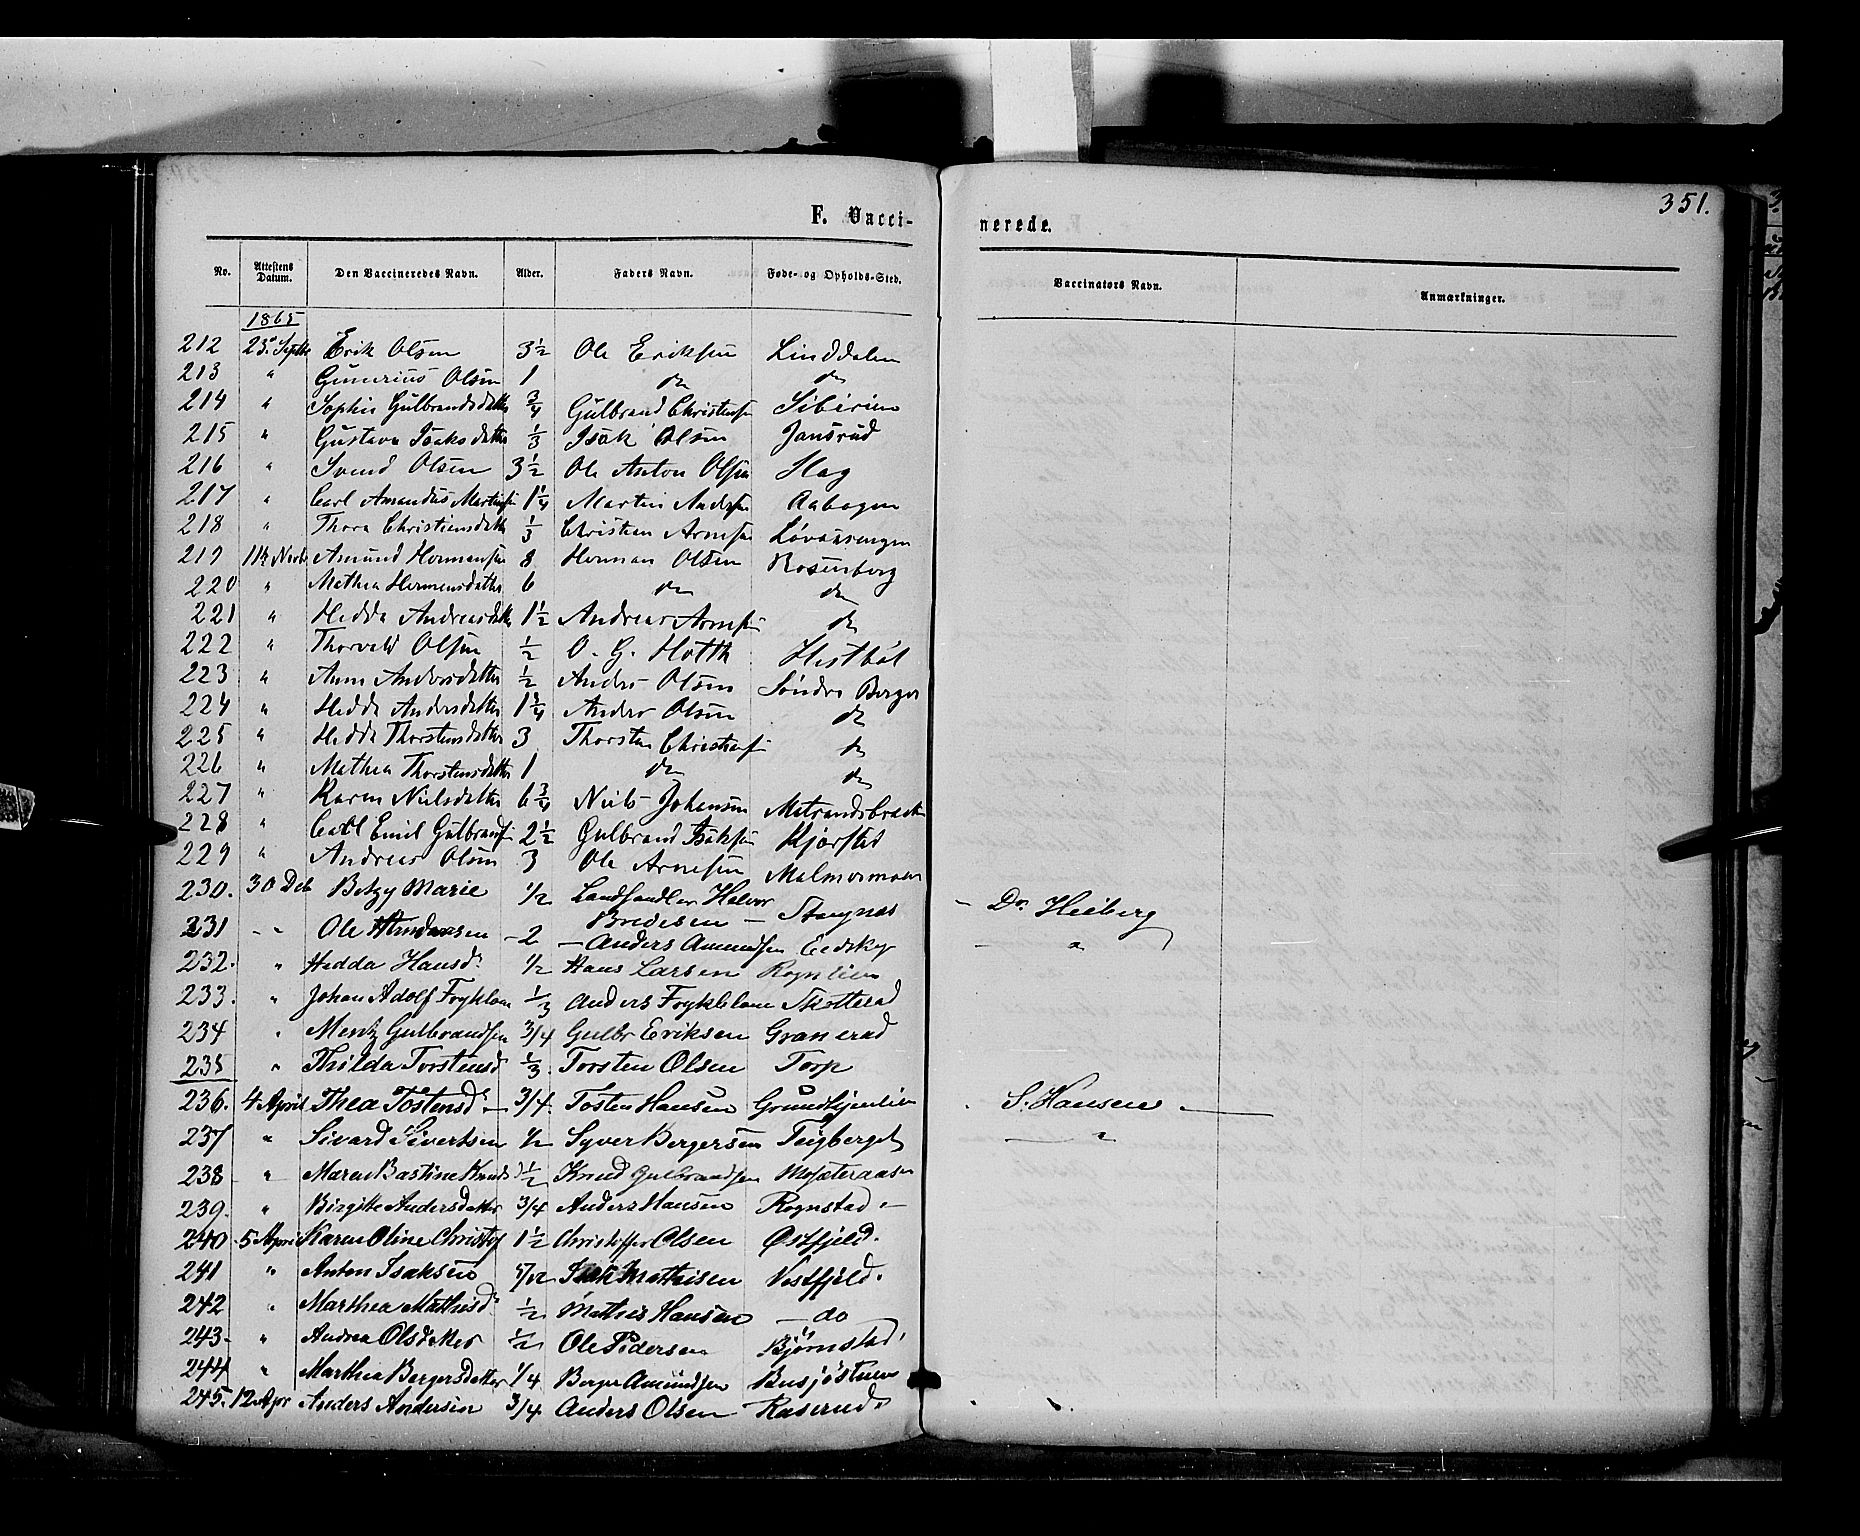 351.
F. Vacci-
nerede.
No. Attestens Datum. Den Vaccineredes Navn. Alder. Faders Navn. Føde- og Opholds-Sted. Vaccinators Navn. Anmærkninger.
1865
212 23. Septbr Erik Olsen 3½ Ole Eriksen Linddalen
213 " Gunerius Olsen 1 do do
214 " Sophie Gulbrandsdatter ¾ Gulbrand Christensen Sibirien
215 " Gustava Isaksdatter ⅓ Isak Olsen Jansrud
216 " Svend Olsen 3½ Ole Anton Olsen Hag
217 " Carl Amandus Martinsen 1¼ Martin Andersen Aabogen
218 " Thora Christiansdatter ⅓ Christian Arnesen Løvaasengen
219 11te Novbr Amund Hermansen 8 Herman Olsen Rosenberg
220 " Mathea Hermansdatter 6 do do
221 " Hedda Andreasdatter 1½ Andreas Arnesen do
222 " Thorvald Olsen ½ O. G. Hotth Hestbøl
223 " Anne Andersdatter ½ Anders Olsen Søndre Berger
224 " Hedda Andersdatter 1¾ Anders Olsen do
225 " Hedda Thorstensdatter 3 Thorsten Christiansen do
226 " Mathea Thorstensdatter 1 do do
227 " Karen Nielsdatter 6¾ Niels Johansen Matrandsbraaten
228 " Carl Emil Gulbrandsen 2½ Gulbrand Isaksen Kjørstad
229 " Andreas Olsen 3 Ole Arnesen Malmermoen
230. 30 Dcb Betzy Marie 1/2 Landhandler Halvor
Bredesen - Stangnæs - Dr. Heiberg
231 - " Ole Andersen - 2 - Anders Amundsen Eidskog - "
232. " Hedda Hansd. 1/2 Hans Larsen Rognlien
233. " Johan Adolf Fryklom 1/3 Anders Fryklom Skotterud
234 " Mentz Gulbrandsen 3/4 Gulbr Eriksen Granerud
235 " Thilda Torstensd 1/3. Torsten Olsen Torp
236. 4 April Thea Tostensd. - 3/4. Tosten Hansen Grundtjenlien S. Hansen -
237 " Sivard Sivertsen 1/2 Syver Bergersen Teigberget - "
238 - " Maren Bastine Knudsd 1/2 Knud Gulbrandsen Mosæteraasen
239. " Birgitte Andersdatter 3/4 Anders Hansen Rognstad. -
240 5 April Karen Oline Christof 1½ Christoffer Olsen Østfjeld.
241 " Anton Isaksen 5/12 Isak Mathisen Vestfjeld.
242 " Marthea Mathisd. 1/2 Mathis Hansen - do -
243- " Andrea Olsdatter 1/2 Ole Pedersen Bjørnstad,
244 " Marthea Bergersdatter 1/4 Berger Amundsen Busjøstuen
245. 12 Apr Anders Andersen 3/4. Anders Olsen Kaserud.